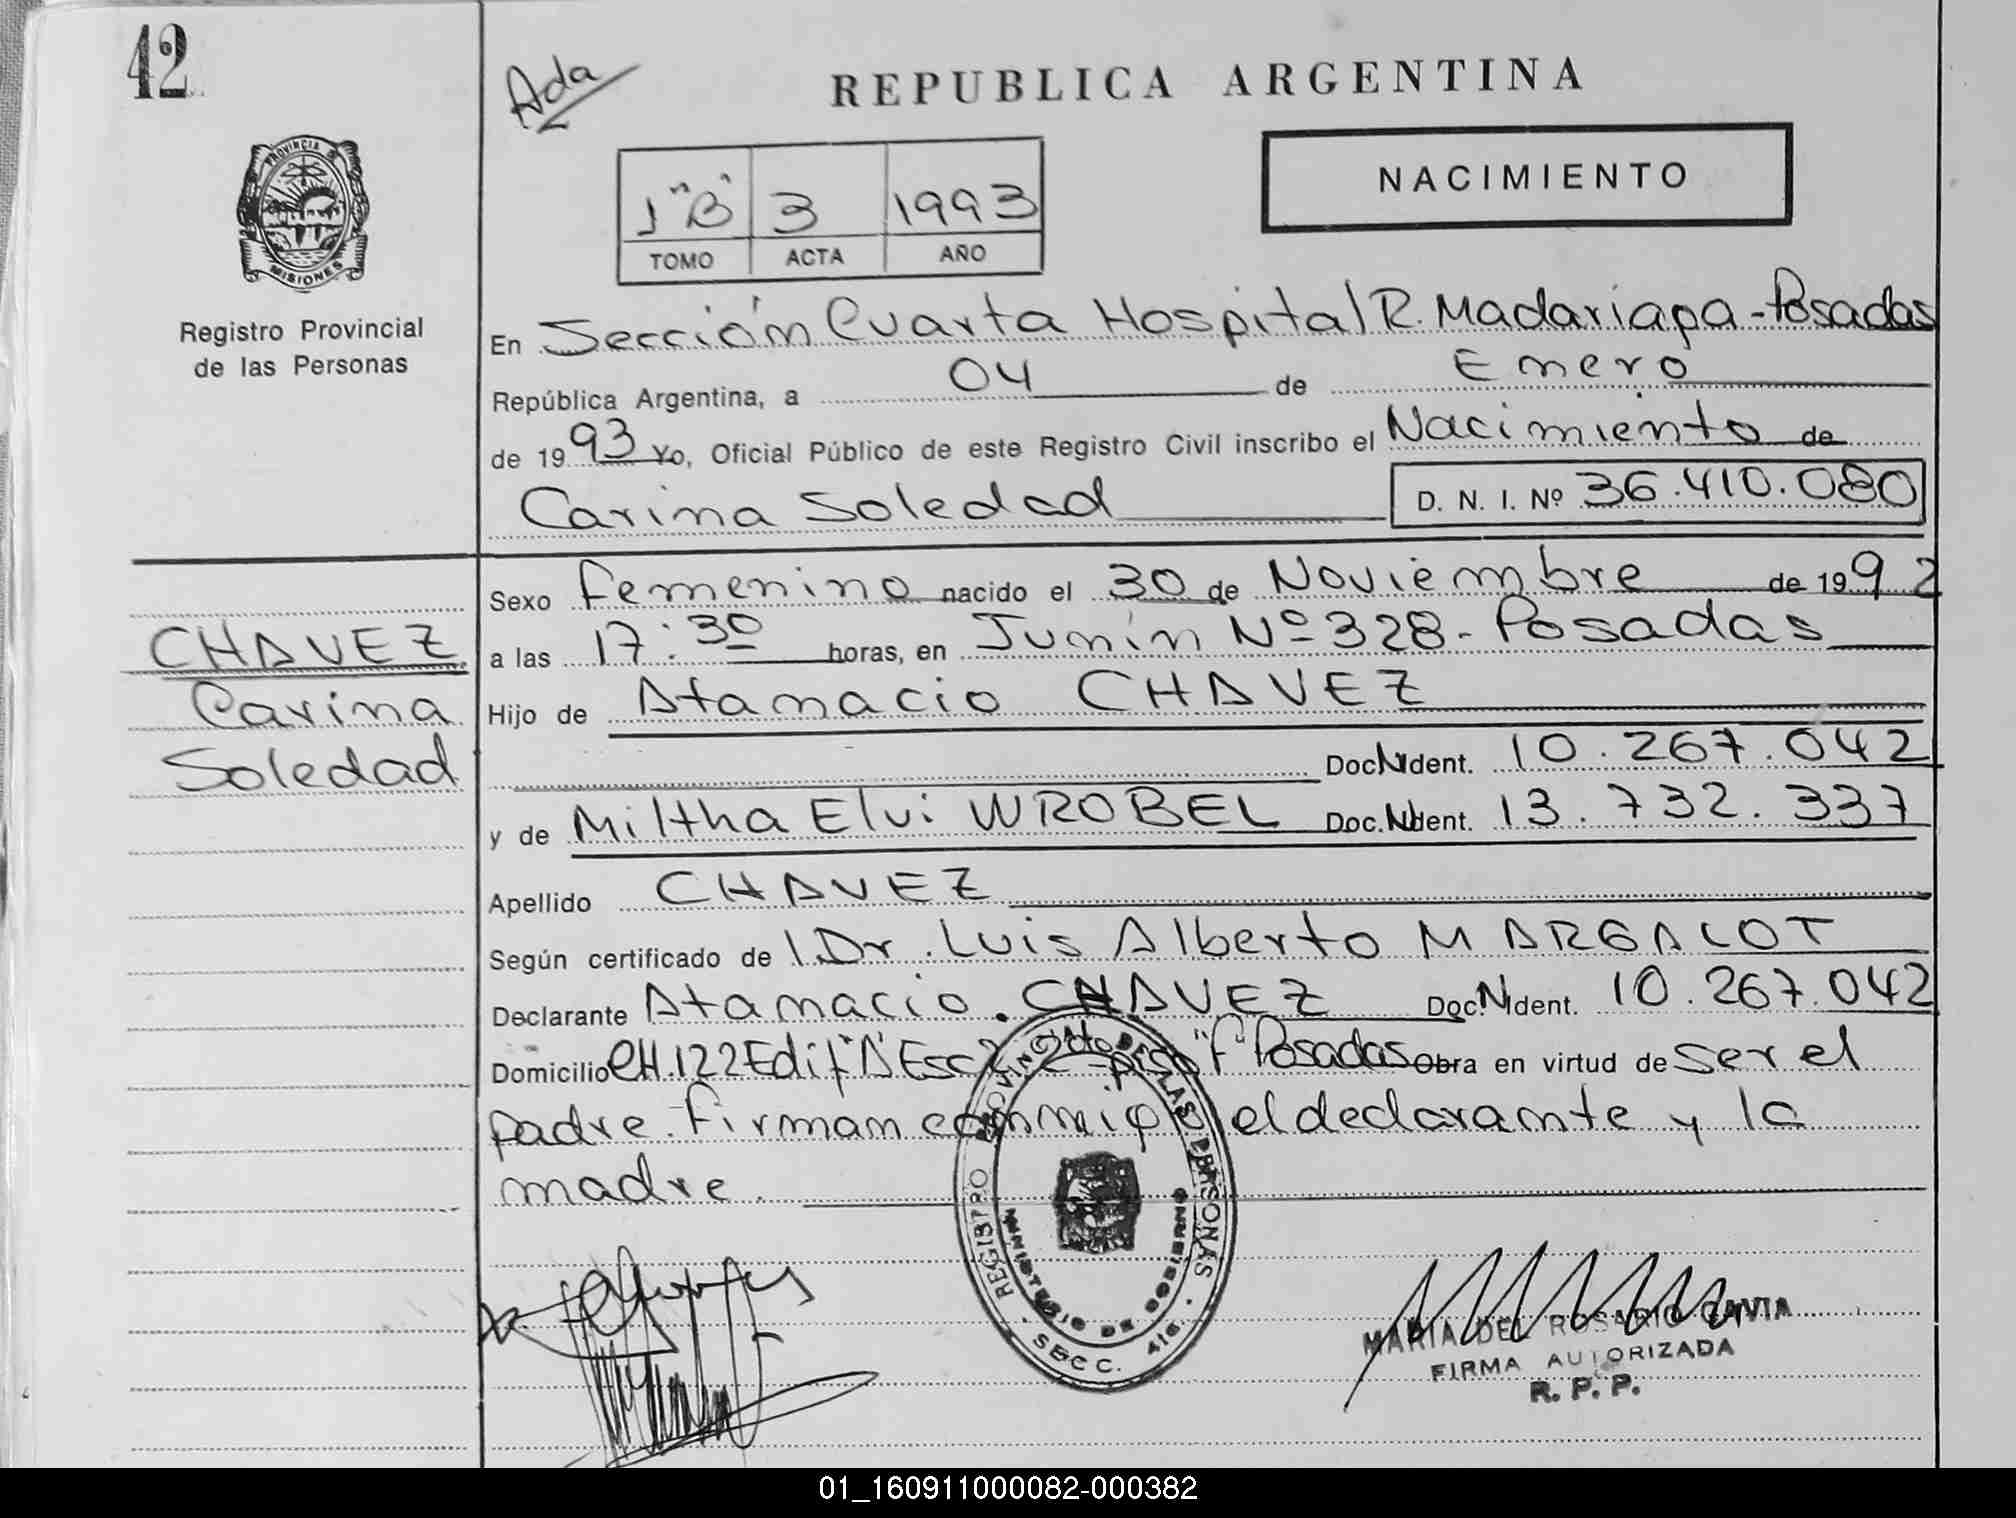 42
Ada
REPUBLICA ARGENTINA
PROVINCIA DE
MISIONES
Registro Provincial
de las Personas
1 "B" 3 1993
TOMO ACTA AÑO
NACIMIENTO
En Sección Cuarta Hospital R. Madariaga - Posadas
República Argentina, a 04 de Enero
de 1993 Yo, Oficial Público de este Registro Civil inscribo el Nacimiento de
Carina Soledad D. N. I. Nº 36.410.080
Sexo Femenino nacido el 30 de Noviembre de 1992
CHAVEZ
Carina
Soledad
a las 17:30 horas, en Junín Nº 328 - Posadas
Hijo de Atanacio CHAVEZ
Doc. Ident. 10.267.042
y de Miltha Elvi WROBEL Doc. Ident. 13.732.337
Apellido CHAVEZ
Según certificado de Dr. Luis Alberto MARGALOT
Declarante Atanacio CHAVEZ Doc. Ident. 10.267.042
Domicilio CH.122 Edif "A" Esc 2 2º piso "F" Posadas Obra en virtud de ser el
padre. Firman conmigo el declarante y la
madre.
REGISTRO PROVINCIAL DE LAS PERSONAS
MINISTERIO DE GOBIERNO
SECC. 4ta.
MARIA DEL ROSARIO GAVIA
FIRMA AUTORIZADA
R. P. P.
01_160911000082-000382